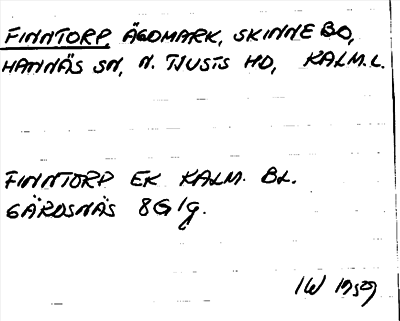 FINNTORP, ÄGOMARK, SKINNEBO,
HANNÄS SN, N. TJUSTS HD, KALM. L.
FINNTORP EK KALM. BL.
GÄRDSNÄS 8G 1g.
IW